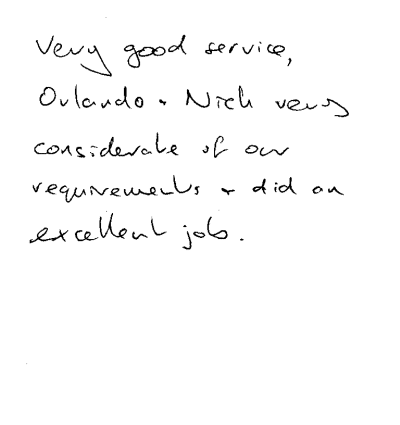 Very good service,
Orlando + Nick very
considerate of our
requirements + did an
excellent job.